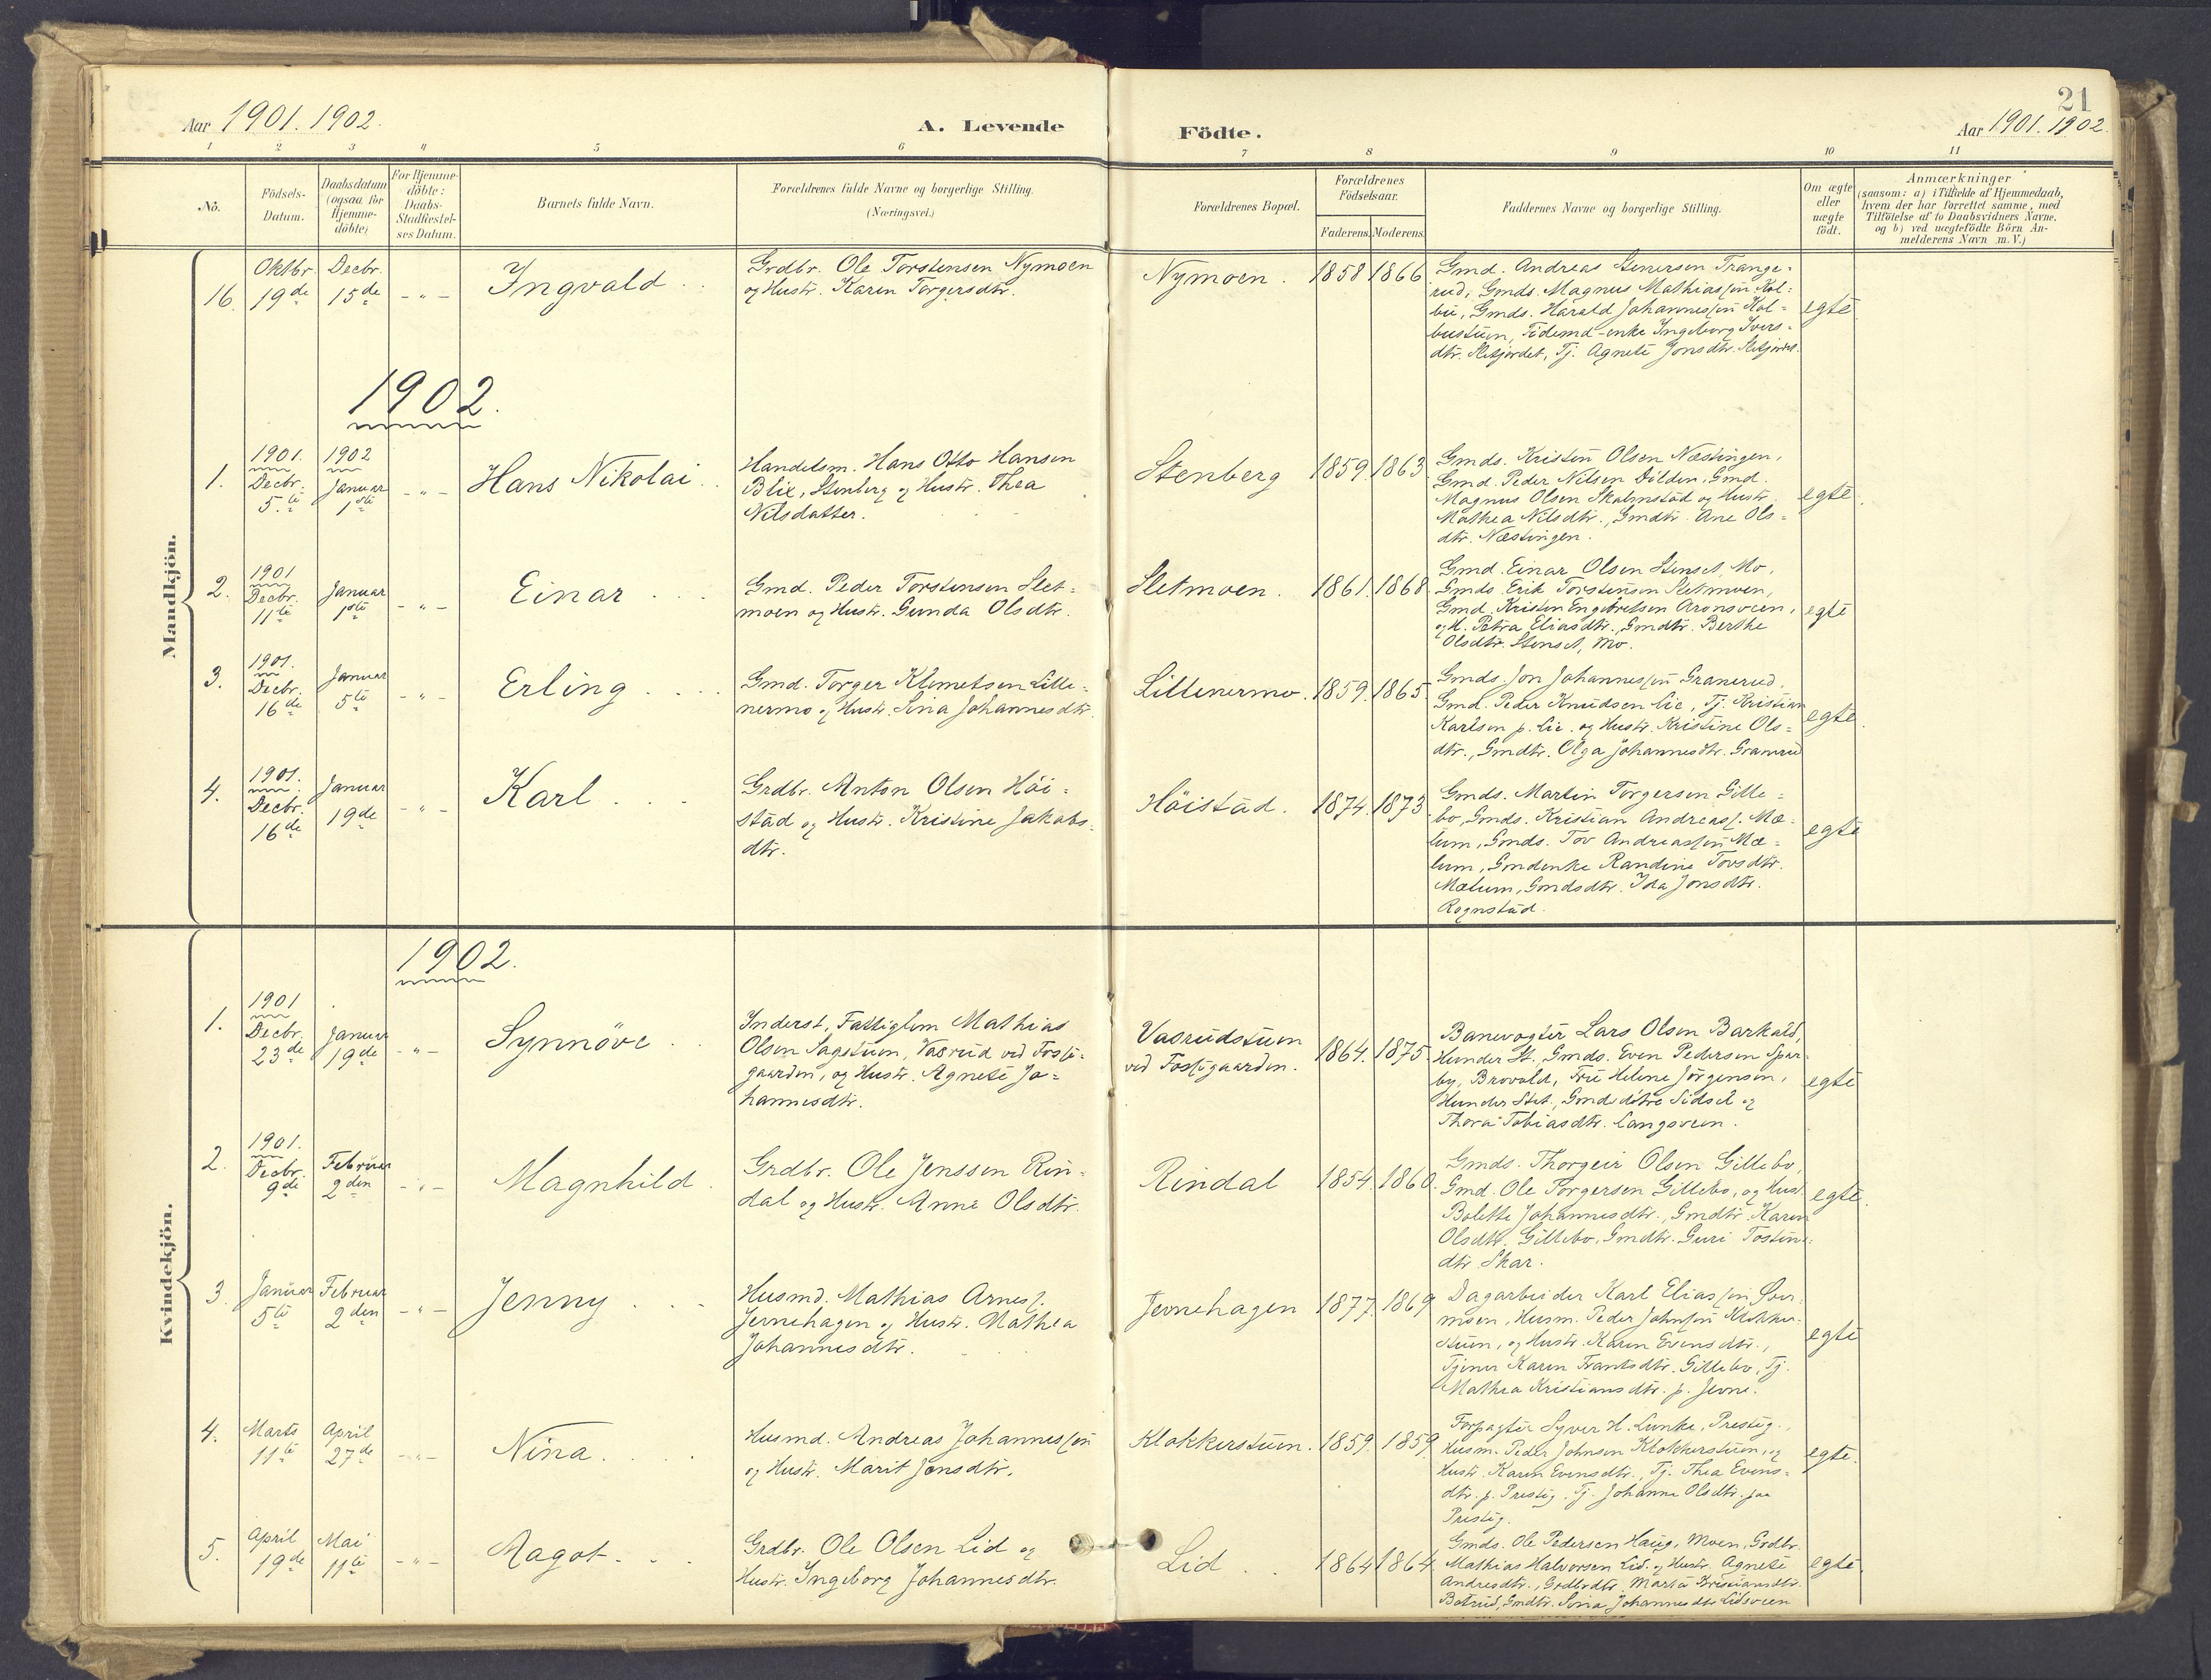 21
Aar 1901. 1902.
A. Levende
Födte.
Aar 1901. 1902.
1 2 3 4 5 6 7 8 9 10 11
No.
Födsels-
Datum.
Daabsdatum
(ogsaa for
Hjemme-
döbte)
For Hjemme-
döbte:
Daabs-
Stadfæstel-
ses Datum.
Barnets fulde Navn.
Forældrenes fulde Navne og borgerlige Stilling.
(Næringsvei.)
Forældrenes Bopæl.
Forældrenes
Födselsaar.
Faderens. Moderens.
Faddernes Navne og borgerlige Stilling.
Om ægte
eller
uægte
födt.
Anmærkninger
(saasom: a) i Tilfælde af Hjemmedaab,
hvem der har forrettet samme, med
Tilföielse af to Daabsvidners Navne,
og b) ved uægtefödte Börn An-
melderens Navn m.V.)
Mandkjön.
16.
Oktbr.
19de
Decbr.
15de
- " -
Ingvald
Grdbr. Ole Torstensen Nymoen
og Hustr. Karen Torgersdtr.
Nymoen.
1858 1866
Gmd. Andreas Stenersen Trange-
rud, Gmds. Magnus Mathiassen Kol-
bu, Gmds. Harald Johannessen Kol-
bustuen, Ingeborg Ivers-
dtr. Sletjordet, Tj. Agnete Jonsdtr. Sletjordet.
egte
1902.
1.
1901.
Decbr.
5.te
1902
Januar
1ste
- " -
Hans Nikolai
Handelsm. Hans Otto Hansen
Blix, Stenberg og Hustr. Thea
Nilsdatter.
Stenberg
1859. 1863
Gmds. Kristen Olsen Næstingen,
Gmd. Peder Nilsen Dölden, Gmd.
Magnus Olsen Skalmstad og Hustr.
Mathea Nilsdtr., Gmdtr. Ane Ols-
dtr. Næstingen.
egte.
2.
1901
Decbr.
11te
Januar
1ste
- " -
Einar
Gmd. Peder Torstensen Slet-
moen og Hustr. Gunda Olsdtr.
Sletmoen.
1861. 1868.
Gmd. Einar Olsen Stenset, Mo,
Gmds. Erik Torstensen Sletmoen,
Gmd. Kristen Engebretsen Aronsveen,
og H. Petra Eliasdtr., Gmdtr. Berthe
Olsdtr. Stenset, Mo.
egte
3.
1901.
Decbr.
16de
Januar
5te
- " -
Erling
Gmd. Torger Klemetsen Lille-
nermo og Hustr. Sina Johannesdtr.
Lillenermo.
1859. 1865
Gmds. Jon Johannessen Granerud,
Gmd. Peder Knudsen Lie, Tj. Kristian
Karlsen p. Lie. og Hustr. Kristine Ols-
dtr., Gmdtr. Olga Johannesdtr. Granerud
egte.
4.
1901.
Decbr.
16de
Januar
19de
- " -
Karl
Grdbr. Anton Olsen Höi-
stad og Hustr. Kristine Jakobs-
dtr.
Höistad.
1874. 1873
Gmds. Martin Torgersen Gille-
bo, Gmds. Kristian Andreass. Mæ-
lum, Gmds. Tov Andreassen Mæ-
lum, Gmdenke Randine Tovsdtr.
Mælum, Gmdsdtr. Ida Jonsdtr.
Rognstad.
egte
Kvindekjön.
1902.
1.
1901
Decbr.
23de
Januar
19de
- " -
Synnöve
Inderst, Fattiglem Mathias
Olsen Sagstuen, Vasrud ved Fosse-
gaarden, og Hustr. Agnete Jo-
hannesdtr.
Vasrudstuen
ved Fossegaarden.
1864. 1875.
Banevogter Lars Olsen Barkald,
Hunder St., Gmds. Even Pedersen Spar-
by, Brovold, Fru Helene Jörgensen,
Hunder Stat., Gmdsdötre Sidsel og
Thora Tobiasdtr. Langsveen.
egte
2.
1901.
Decbr.
9de
Februar
2den
- " -
Magnhild.
Grdbr. Ole Jenssen Rin-
dal og Hustr. Anne Olsdtr.
Rindal
1854. 1860.
Gmds. Thorgeir Olsen Gillebo,
Gmd. Ole Torgersen Gillebo, og Hust.
Bolette Johannesdtr., Gmdtr. Karen
Olsdtr. Gillebo, Gmdtr. Guri Tostens-
dtr. Skar.
egte.
3.
Januar
5te
Februar
2den
- " -
Jenny
Husmd. Mathias Arness.
Jevnehagen og Hustr. Mathea
Johannesdtr.
Jevnehagen
1877. 1869
Dagarbeider Karl Eliassen Över-
moen, Husm. Peder Johnsen Klokker-
stuen, og Hustr. Karen Evensdtr.,
Tjener Karen Frantsdtr. Gillebo, Tj.
Mathea Kristiansdtr. p. Jevne.
egte
4.
Marts
11te
April
27de
- " -
Nina.
Husmd. Andreas Johannessen
og Hustr. Marit Jensdtr.
Klokkerstuen.
1859. 1859
Forpagter Syver H. Lunke, Presteg.,
Husm. Peder Johnsen Klokkerstuen, og
Hustr. Karen Evensdtr., Tj. Thea Evens-
dtr. p. Presteg. Tj. Johanne Olsdtr. paa
Presteg.
egte.
5.
April
19de
Mai
11te
- " -
Ragot
Grdbr. Ole Olsen Lid og
Hustr. Ingeborg Johannesdtr.
Lid
1864 1864.
Gmds. Ole Pedersen Haug, Moen, Grdbr.
Mathias Halvorsen Lid. og Hustr. Agnete
Andresdtr., Grdbrdtr. Martea Kristiansdtr.
Botrud, Gmdtr. Sina Johannesdtr Lidsveen
egte.